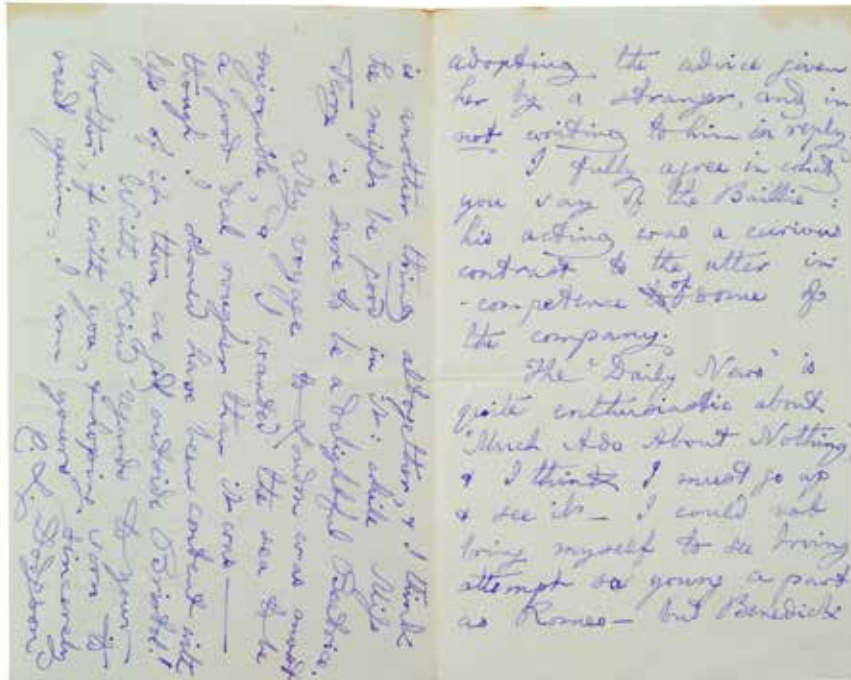 adopting the advice given
her by a stranger, and in
not writing to him in reply.
I fully agree in what
you say of the Baillie:
his acting was a curious
contrast to the utter in
-competence of some of
the company.
The "Daily News" is
quite enthusiastic about
"Much Ado About Nothing",
& I think I must go up
& see it — I could not
bring myself to see Irving
attempt so young a part
as Romeo — but Benedick
is another thing altogether, & I think
he might be good in it: while Miss
Terry is sure to be a delightful Beatrice.
My voyage to London was most
enjoyable, I wanted the sea to be
a good deal rougher than it was —
though I should have been content with
less of it than we got outside Bristol!
With kind regards to your
brother, if with you, & hoping soon to
meet again, I am yours sincerely
C. L. Dodgson